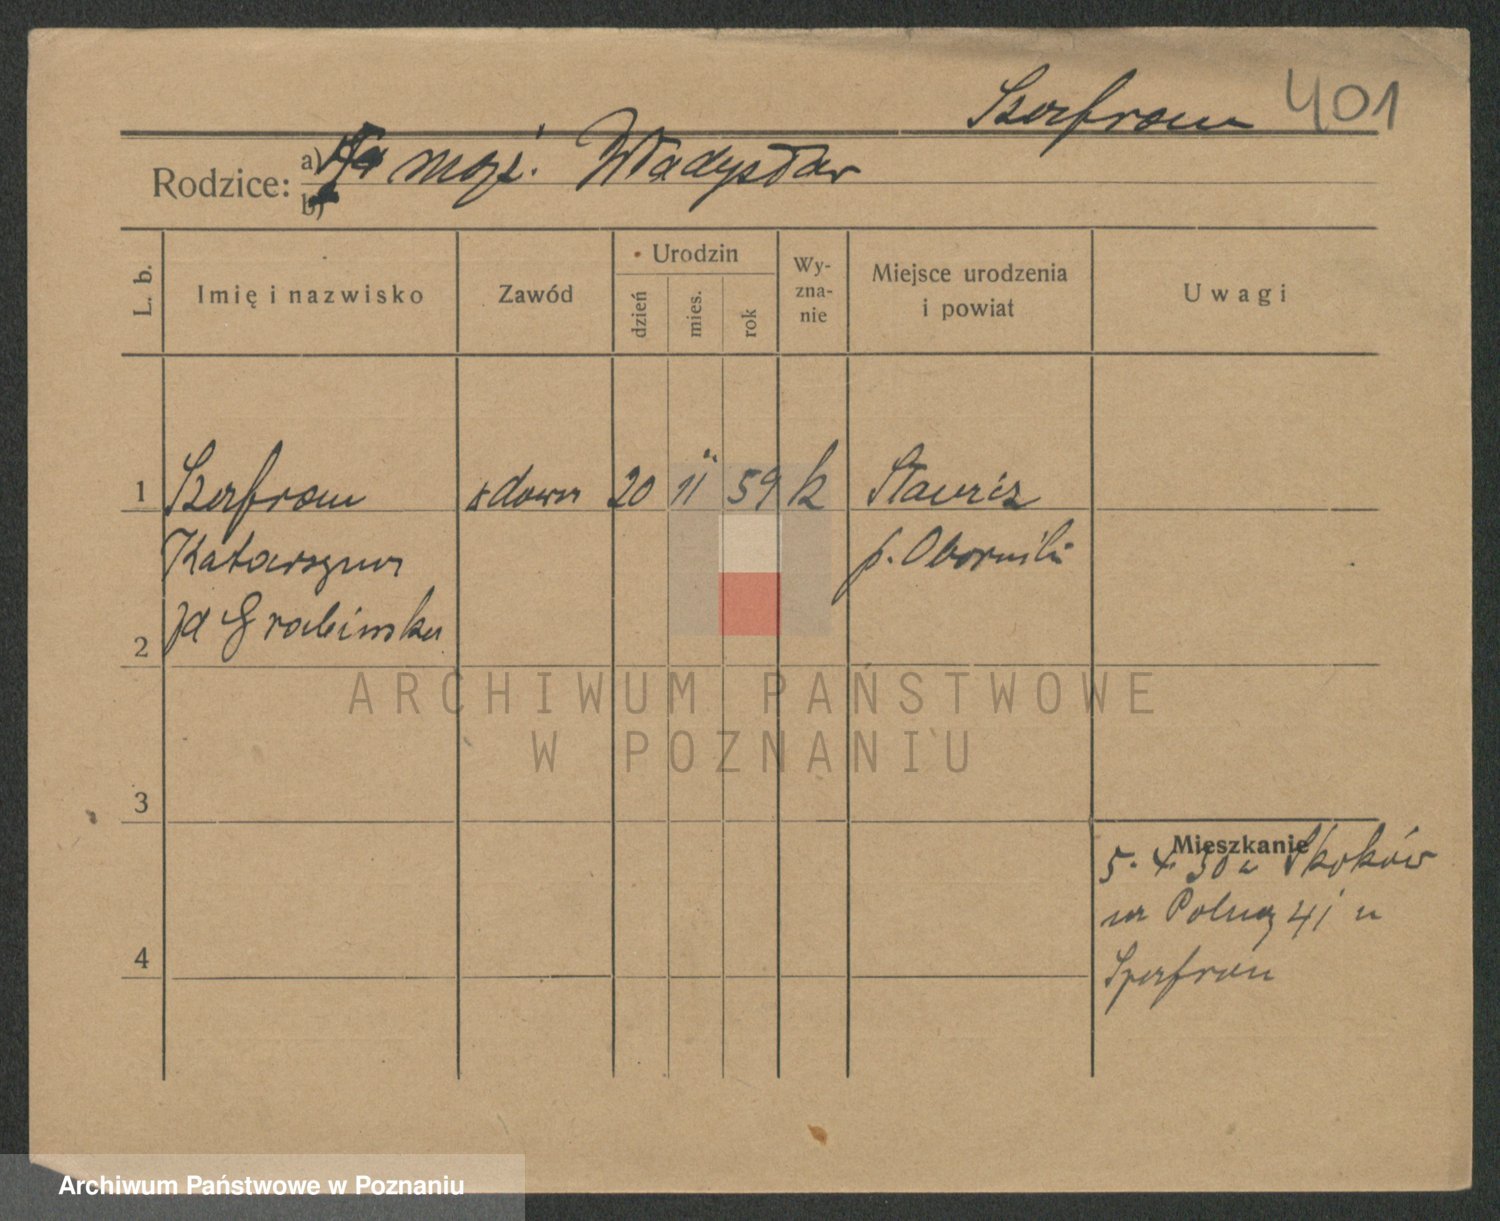 Szafran 401
Rodzice: a) mąż. Władysław
b)
L. b. Imię i nazwisko Zawód Urodzin dzień mies. rok Wy-zna-nie Miejsce urodzenia i powiat Uwagi
1 Szafran wdowa 20 11 59 k
Katarzyna p. Oborniki
2 Grabinska
ARCHIWUM PAŃSTWOWE
W POZNANIU
3
Mieszkanie
5. 4. 30 z Skoków
na Polną 41 u
4 Szafran
Archiwum Państwowe w Poznaniu